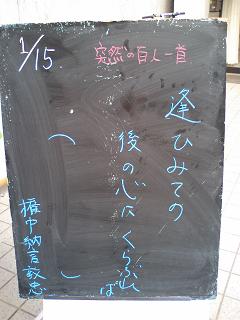 1/15
突然の百人一首
逢ひみての
後の心にくらぶれば
（　　　）
権中納言敦忠